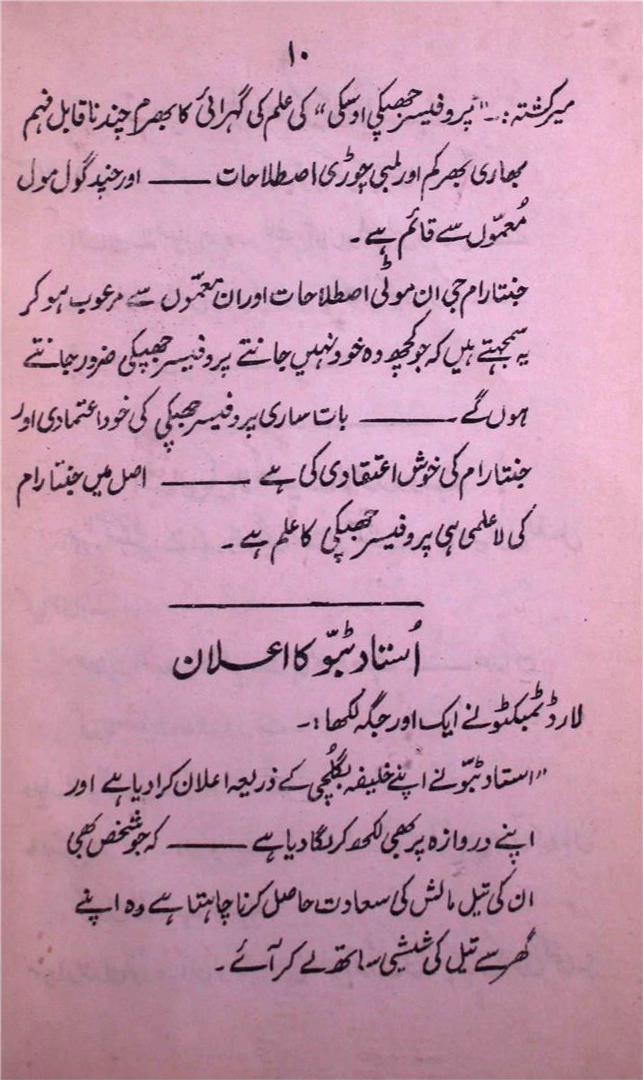 ۱۰
میر گشتہ:۔ "پروفیسر جھپکی اوسکی" کی علم کی گہرائی کا بھرم چند ناقابل فہم
بھاری بھرکم اور لمبی چوڑی اصطلاحات ــــــ اور چند گول مول
مُعمّوں سے قائم ہے۔
جنتا رام جی ان موٹی اصطلاحات اور ان معمّوں سے مرعوب ہو کر
یہ سمجھتے ہیں کہ جو کچھ وہ خود نہیں جانتے پروفیسر جھپکی ضرور جانتے
ہوں گے۔ ــــــ بات ساری پروفیسر جھپکی کی خود اعتمادی اور
جنتا رام کی خوش اعتقادی کی ہے ــــــ اصل میں جنتا رام
کی لاعلمی ہی پروفیسر جھپکی کا علم ہے۔
اُستاد ٹبّو کا اعلان
لارڈ ٹمبکٹو نے ایک اور جگہ لکھا:۔
"استاد ٹبّو نے اپنے خلیفہ بگلُچی کے ذریعہ اعلان کرا دیا ہے اور
اپنے دروازہ پر بھی لکھ کر لگا دیا ہے ــــــ کہ جو شخص بھی
ان کی تیل مالش کی سعادت حاصل کرنا چاہتا ہے وہ اپنے
گھر سے تیل کی شیشی ساتھ لے کر آئے۔